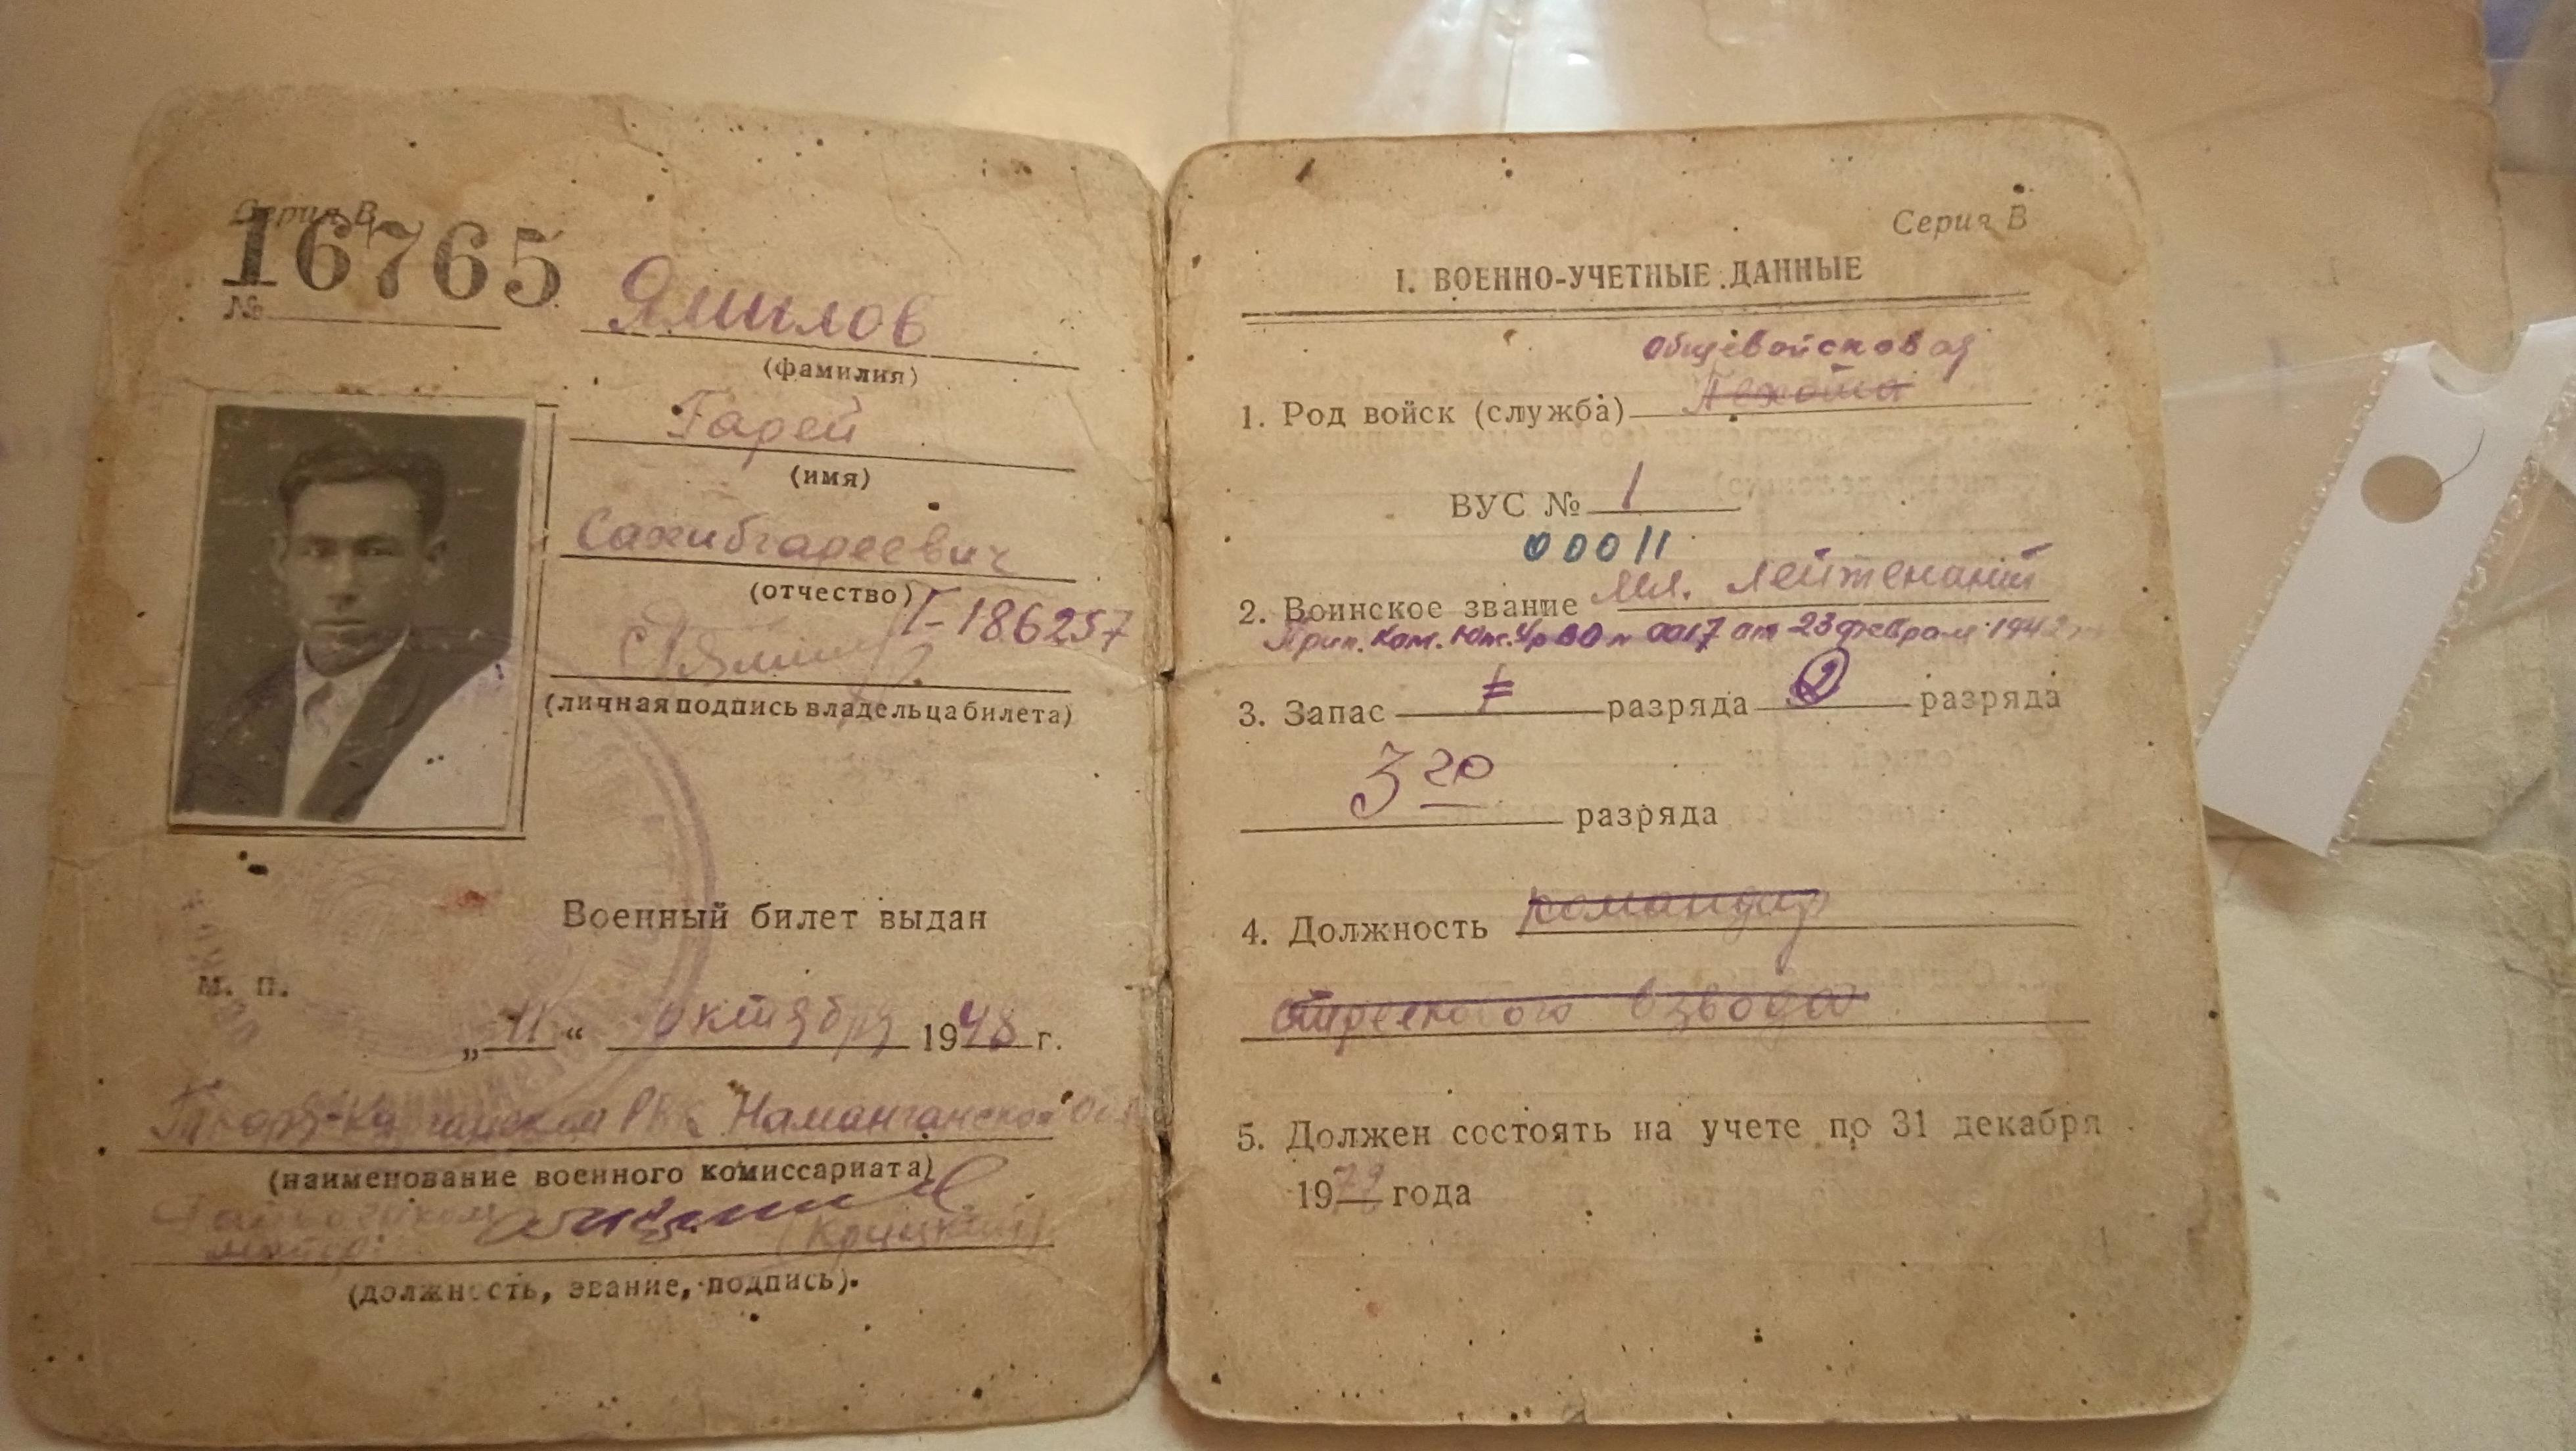 Серия В
16765
№
Ямилов
(фамилия)
Гарей
(имя)
Сахибгареевич
(отчество)
Г-186257
(личная подпись владельца билета)
Военный билет выдан
М. П.
„11“ октября 1948 г.
РВК Наманганской Обл
(наименование военного комиссариата)
майор: (Крицкий)
(должность, звание, подпись).
Серия В
I. ВОЕННО-УЧЕТНЫЕ ДАННЫЕ
общевойсковая
1. Род войск (служба) Пехота
ВУС № 1
00011
2. Воинское звание Мл. лейтенант
Прик. Ком. Юж. Ур ВО № 0017 от 23 февраля 1942 г
3. Запас разряда 2 разряда
3го разряда
4. Должность командир
стрелкового взвода
5. Должен состоять на учете по 31 декабря
1979 года